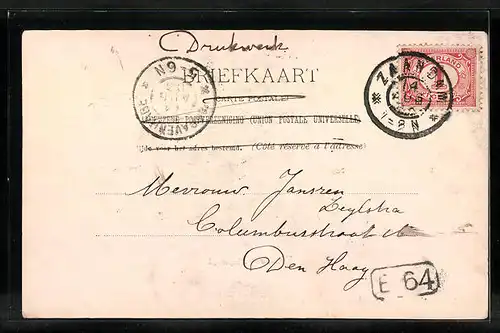 Drukwerk
BRIEFKAART
(CARTE POSTALE)
ALGEMEENE POSTVEREENIGING (UNION POSTALE UNIVERSELLE)
Zijde voor het adres bestemd. (Côté réservé à l'adresse)
5-6N
'S-GRAVENHAGE
ZAANDAM
14
1-2N
Mevrouw Janszen
Zeylstra
Columbusstraat
Den Haag
E 64